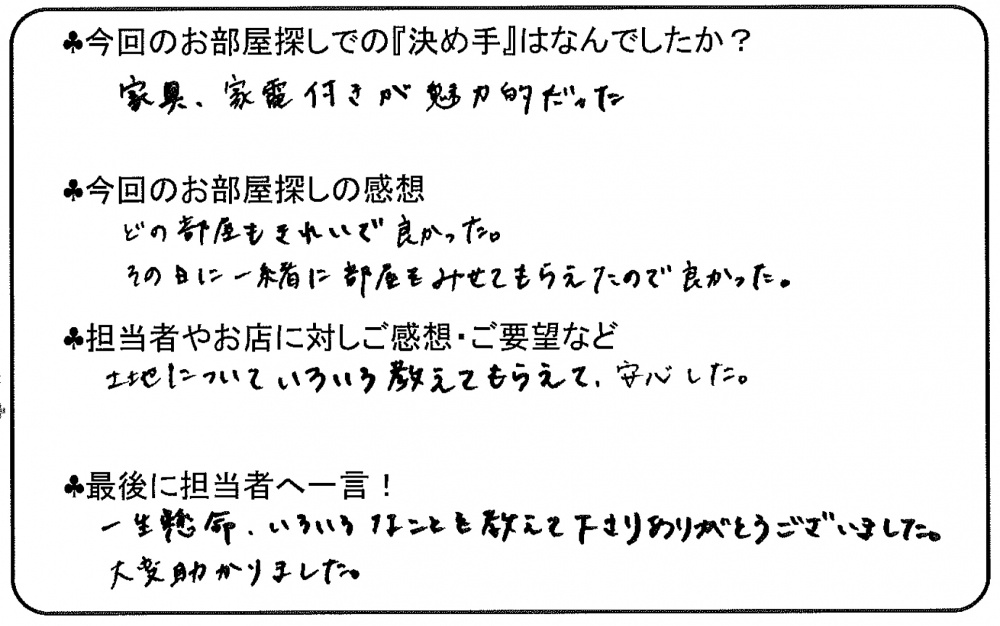 ♣今回のお部屋探しでの『決め手』はなんでしたか？
家具、家電付きが魅力的だった
♣今回のお部屋探しの感想
どの部屋もきれいで良かった。
その日に一緒に部屋をみせてもらえたので良かった。
♣担当者やお店に対しご感想・ご要望など
土地についていろいろ教えてもらえて、安心した。
♣最後に担当者へ一言！
一生懸命、いろいろなことを教えて下さりありがとうございました。
大変助かりました。